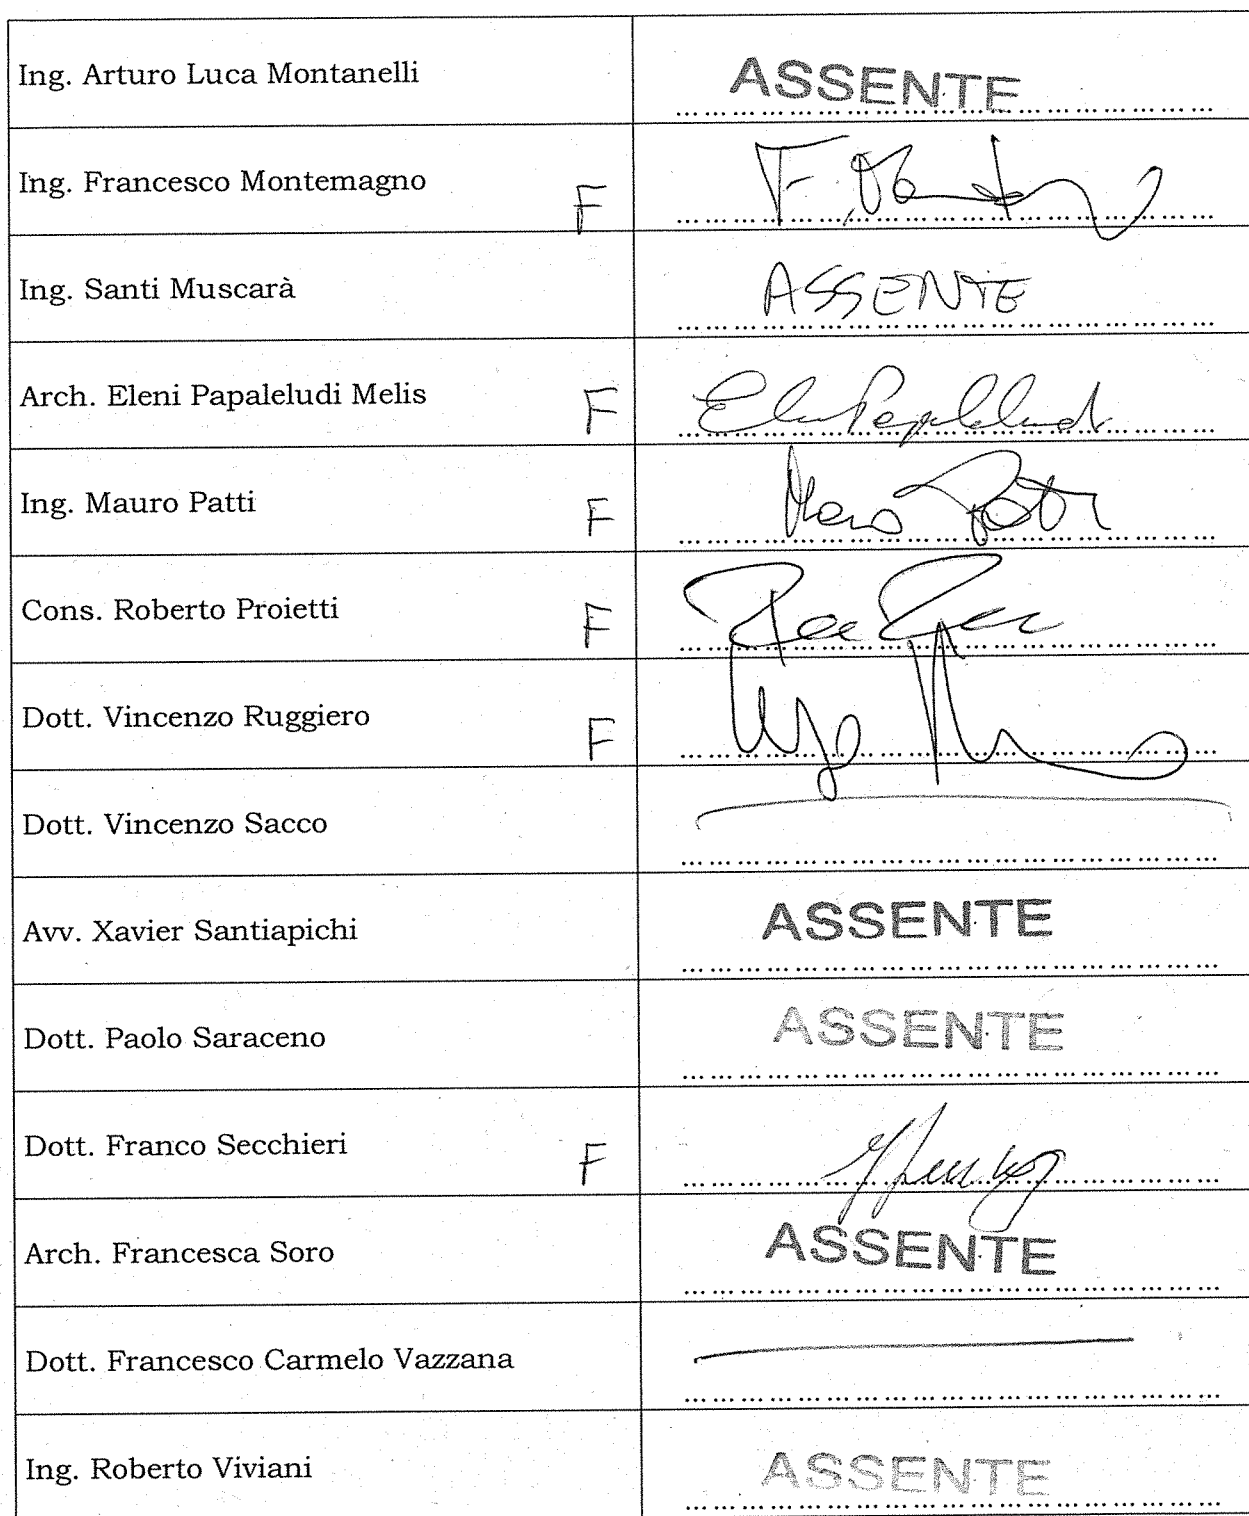 Ing. Arturo Luca Montanelli ASSENTE
Ing. Francesco Montemagno F
Ing. Santi Muscarà ASSENTE
Arch. Eleni Papaleludi Melis F
Ing. Mauro Patti F
Cons. Roberto Proietti F
Dott. Vincenzo Ruggiero F
Dott. Vincenzo Sacco
Avv. Xavier Santiapichi ASSENTE
Dott. Paolo Saraceno ASSENTE
Dott. Franco Secchieri F
Arch. Francesca Soro ASSENTE
Dott. Francesco Carmelo Vazzana
Ing. Roberto Viviani ASSENTE